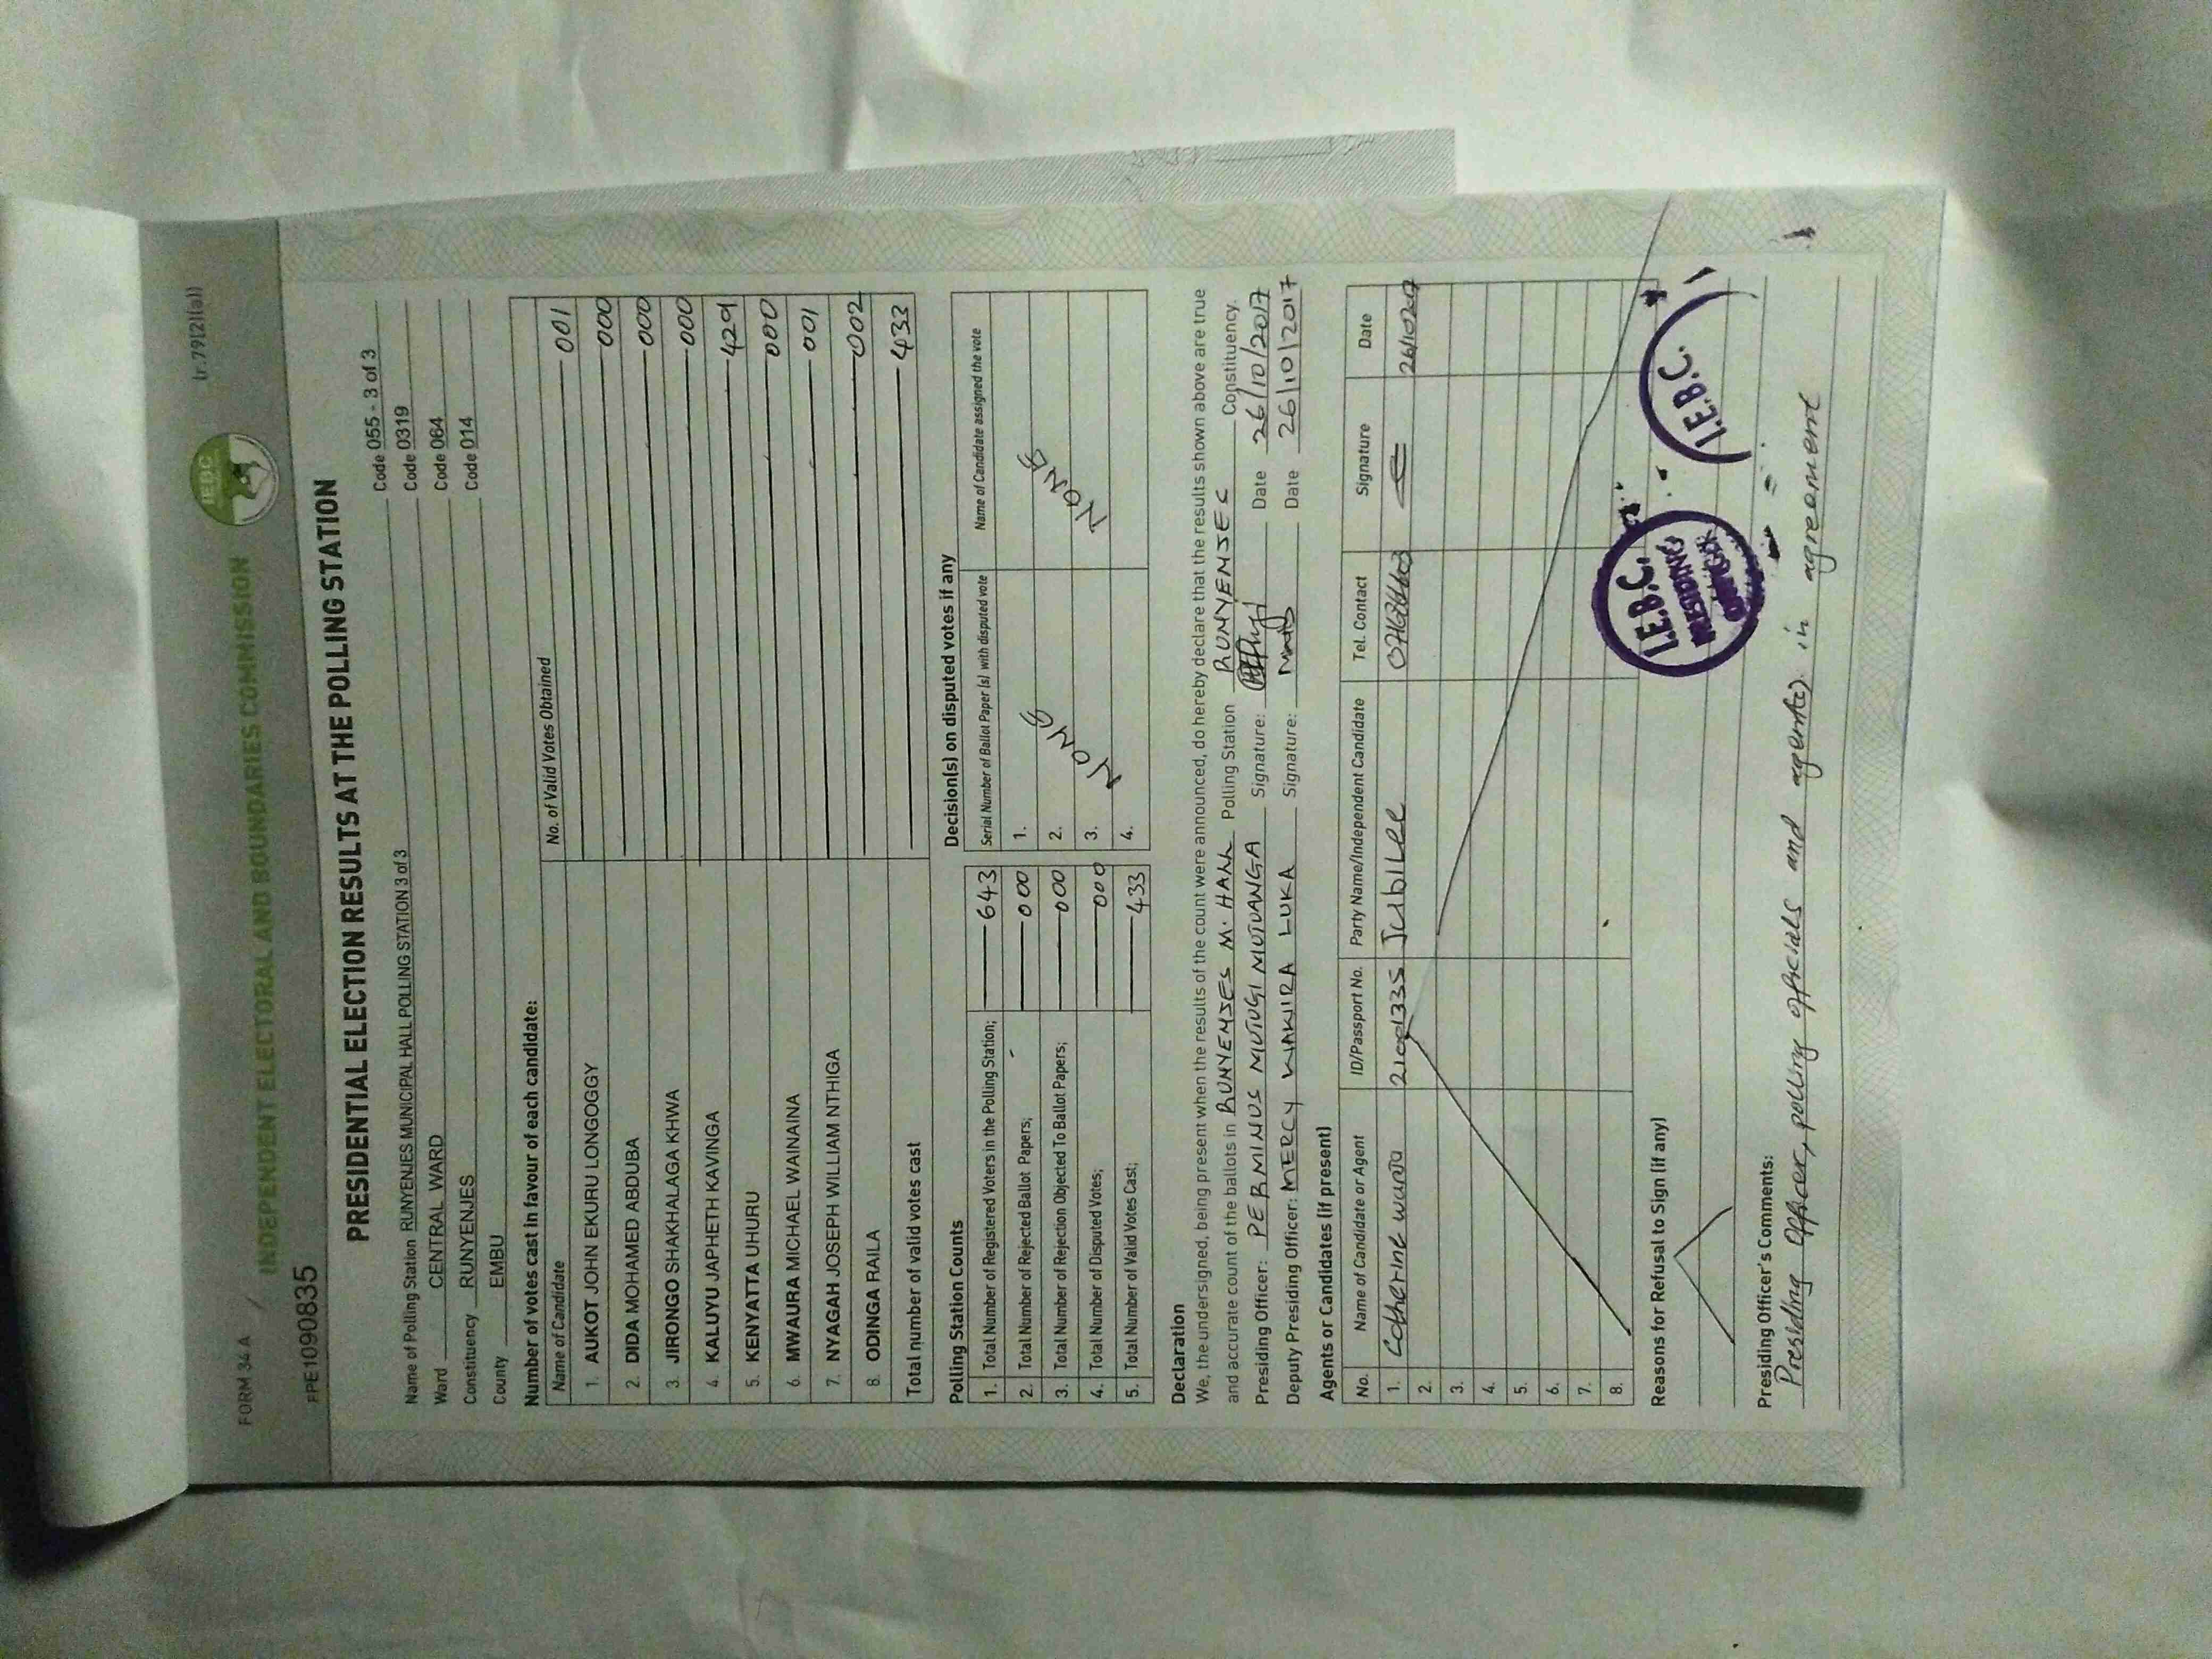 FORM 34 A
INDEPENDENT ELECTORAL AND BOUNDARIES COMMISSION
IEBC
(r.79(2)(a))
PPE1090835
PRESIDENTIAL ELECTION RESULTS AT THE POLLING STATION
Name of Polling Station RUNYENJES MUNICIPAL HALL POLLING STATION 3 of 3 Code 055 - 3 of 3
Ward CENTRAL WARD Code 0319
Constituency RUNYENJES Code 064
County EMBU Code 014
Number of votes cast in favour of each candidate:
Name of Candidate No. of Valid Votes Obtained
1. AUKOT JOHN EKURU LONGOGGY 001
2. DIDA MOHAMED ABDUBA 000
3. JIRONGO SHAKHALAGA KHWA 000
4. KALUYU JAPHETH KAVINGA 000
5. KENYATTA UHURU 429
6. MWAURA MICHAEL WAINAINA 000
7. NYAGAH JOSEPH WILLIAM NTHIGA 001
8. ODINGA RAILA 002
Total number of valid votes cast 433
Polling Station Counts
1. Total Number of Registered Voters in the Polling Station; 643
2. Total Number of Rejected Ballot Papers; 000
3. Total Number of Rejection Objected To Ballot Papers; 000
4. Total Number of Disputed Votes; 000
5. Total Number of Valid Votes Cast; 433
Decision(s) on disputed votes if any
Serial Number of Ballot Paper (s) with disputed vote Name of Candidate assigned the vote
1.
2. NONE NONE
3.
4.
Declaration
We, the undersigned, being present when the results of the count were announced, do hereby declare that the results shown above are true
and accurate count of the ballots in RUNYENJES M. HALL Polling Station RUNYENJES Constituency.
Presiding Officer: PERMINUS MUTUGI MUTUANGA Signature: Date 26/10/2017
Deputy Presiding Officer: MERCY WAWIRA LUKA Signature: Date 26/10/2017
Agents or Candidates (if present)
No. Name of Candidate or Agent ID/Passport No. Party Name/Independent Candidate Tel. Contact Signature Date
1. Catherine Jubilee
2.
3.
4.
5.
6.
7.
8.
I.E.B.C. PRESIDING
I.E.B.C.
Reasons for Refusal to Sign (if any)
Presiding Officer's Comments:
Presiding Officer, polling officials and agent(s) in agreement